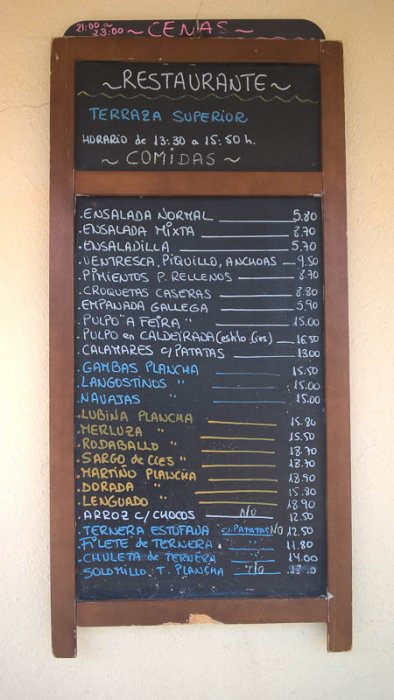 21:00 a
23:00 ~ CENAS ~
~ RESTAURANTE ~
TERRAZA SUPERIOR
HORARIO de 13:30 a 15:50 h.
~ COMIDAS ~
. ENSALADA NORMAL 5.80
. ENSALADA MIXTA 8.70
. ENSALADILLA 5.70
. VENTRESCA, PIQUILLO, ANCHOAS 9.50
. PIMIENTOS P. RELLENOS 8.70
. CROQUETAS CASERAS 8.80
. EMPANADA GALLEGA 5.90
. PULPO "A FEIRA" 15.00
. PULPO en CALDEIRADA (estilo Cíes) 16.50
. CALAMARES c/PATATAS 13.00
. GAMBAS PLANCHA 15.50
. LANGOSTINOS " 15.00
. NAVAJAS " 15.00
. LUBINA PLANCHA 15.80
. MERLUZA " 15.50
. RODABALLO " 18.70
. SARGO de CIES " 18.70
. MARTIÑO PLANCHA 18.90
. DORADA " 15.80
. LENGUADO " 18.90
. ARROZ C/CHOCOS NO 12.50
. TERNERA ESTUFADA C/PATATAS NO 12.50
. FILETE de TERNERA " 11.80
. CHULETA de TERNERA " 14.00
. SOLOMILLO T. PLANCHA NO